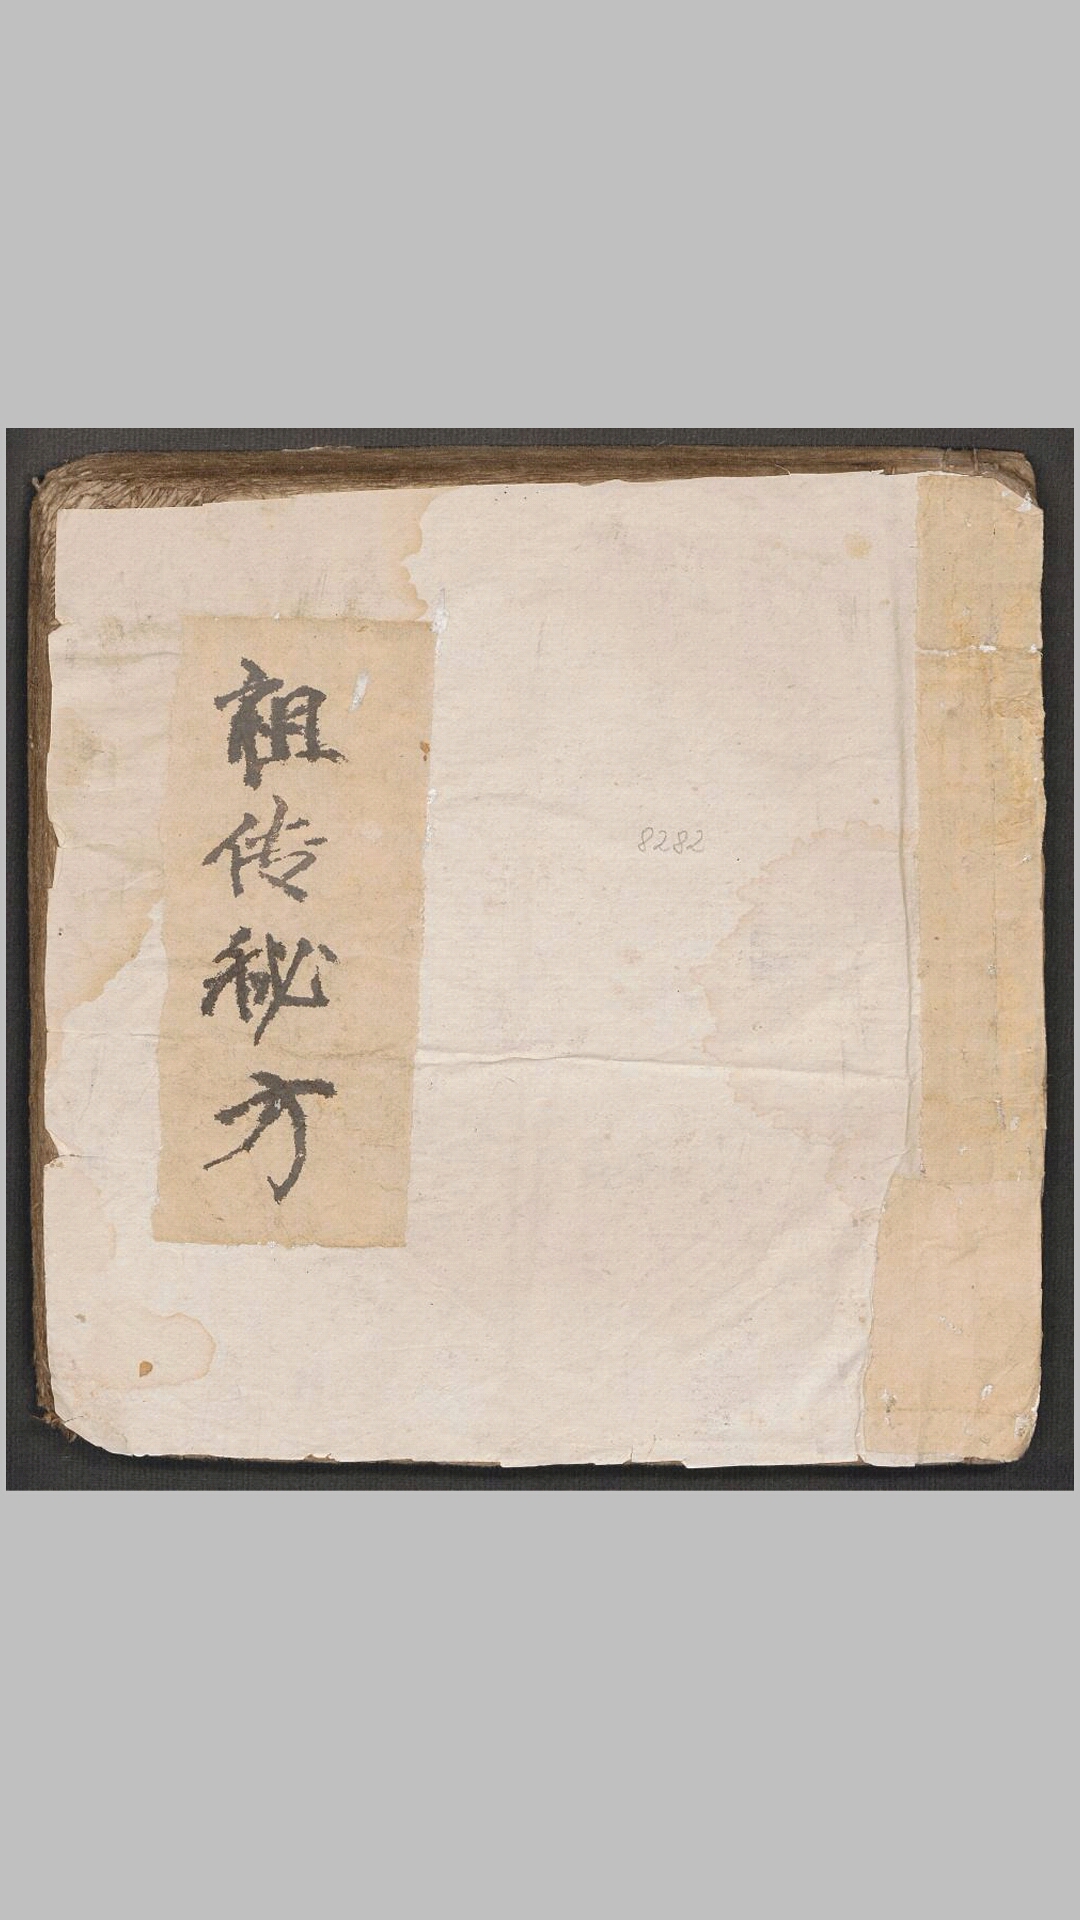 祖传秘方
8282